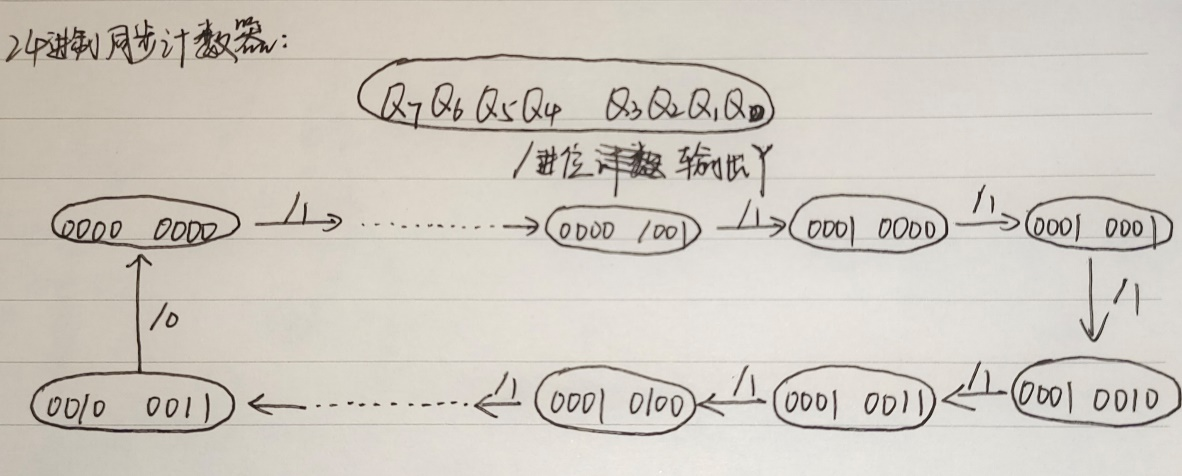 24进制同步计数器:
Q7Q6Q5Q4 Q3Q2Q1Q0
/进位 输出Y
0000 0000 /1 ........ 0000 1001 /1 0001 0000 /1 0001 0001
/0 /1
0010 0011 ........ /1 0001 0100 /1 0001 0011 /1 0001 0010